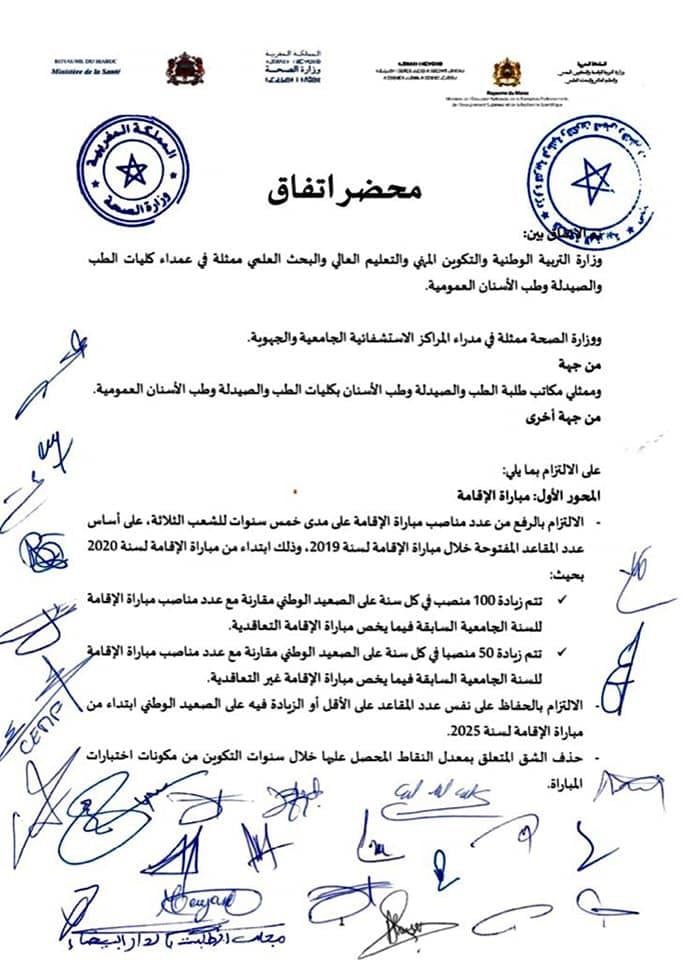 ROYAUME DU MAROC
Ministère de la Santé
المملكة المغربية
وزارة الصحة
المملكة المغربية
Royaume du Maroc
Ministère de l'Education Nationale, de la Formation Professionnelle,
de l'Enseignement Supérieur et de la Recherche Scientifique
المملكة المغربية
وزارة الصحة
محضر اتفاق
تم الاتفاق بين:
وزارة التربية الوطنية والتكوين المهني والتعليم العالي والبحث العلمي ممثلة في عمداء كليات الطب
والصيدلة وطب الأسنان العمومية.
ووزارة الصحة ممثلة في مدراء المراكز الاستشفائية الجامعية والجهوية.
من جهة
وممثلي مكاتب طلبة الطب والصيدلة وطب الأسنان بكليات الطب والصيدلة وطب الأسنان العمومية.
من جهة أخرى
على الالتزام بما يلي:
المحور الأول: مباراة الإقامة
- الالتزام بالرفع من عدد مناصب مباراة الإقامة على مدى خمس سنوات للشعب الثلاثة، على أساس
عدد المقاعد المفتوحة خلال مباراة الإقامة لسنة 2019، وذلك ابتداء من مباراة الإقامة لسنة 2020
بحيث:
✓ تتم زيادة 100 منصب في كل سنة على الصعيد الوطني مقارنة مع عدد مناصب مباراة الإقامة
للسنة الجامعية السابقة فيما يخص مباراة الإقامة التعاقدية.
✓ تتم زيادة 50 منصبا في كل سنة على الصعيد الوطني مقارنة مع عدد مناصب مباراة الإقامة
للسنة الجامعية السابقة فيما يخص مباراة الإقامة غير التعاقدية.
- الالتزام بالحفاظ على نفس عدد المقاعد على الأقل أو الزيادة فيه على الصعيد الوطني ابتداء من
مباراة الإقامة لسنة 2025.
- حذف الشق المتعلق بمعدل النقاط المحصل عليها خلال سنوات التكوين من مكونات اختبارات
المباراة.
CEMP
1
مجلس الطلبة بالدار البيضاء